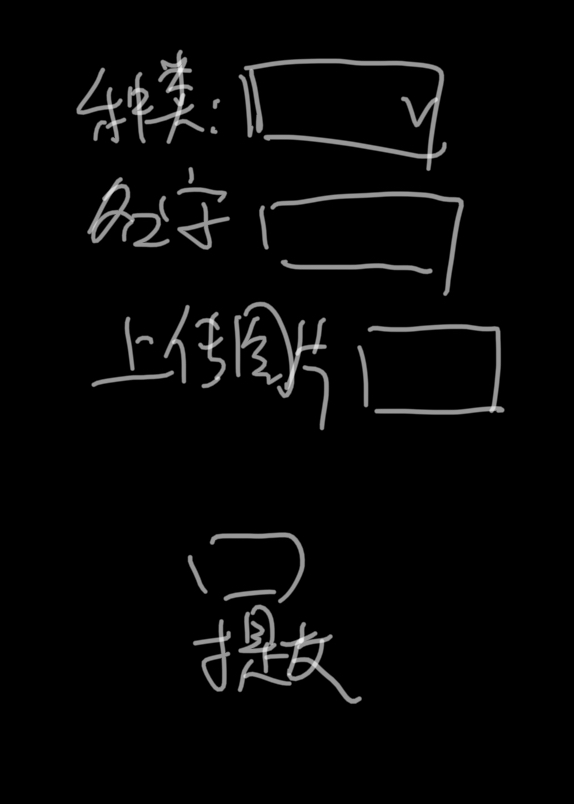 种类:
名字
上传图片
提交